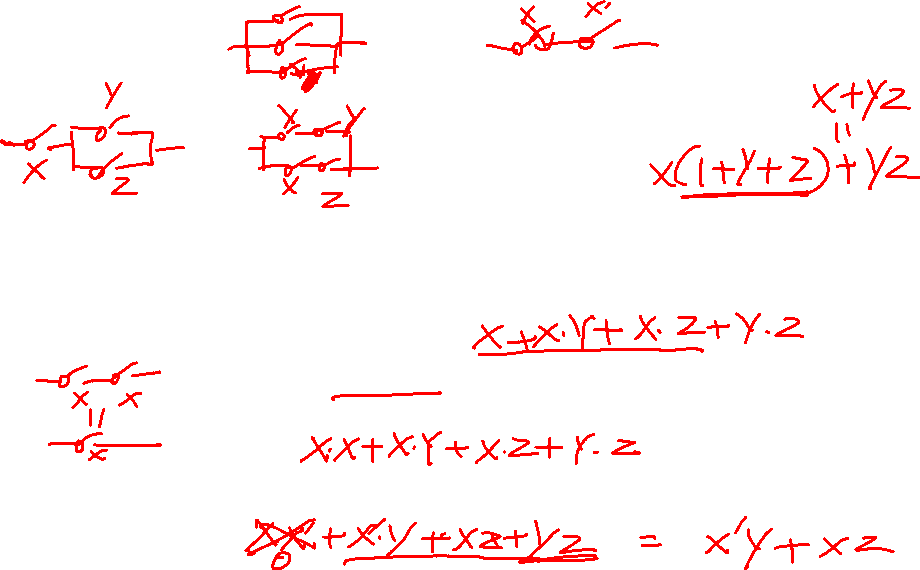 X X'
Y
X
Z
X Y
X
Z
X+YZ
=
X(1+Y+Z)+YZ
X+X·Y+X·Z+Y·Z
X X
=
X
X·X+X·Y+X·Z+Y·Z
0 +X'·Y+XZ+YZ = X'Y+XZ